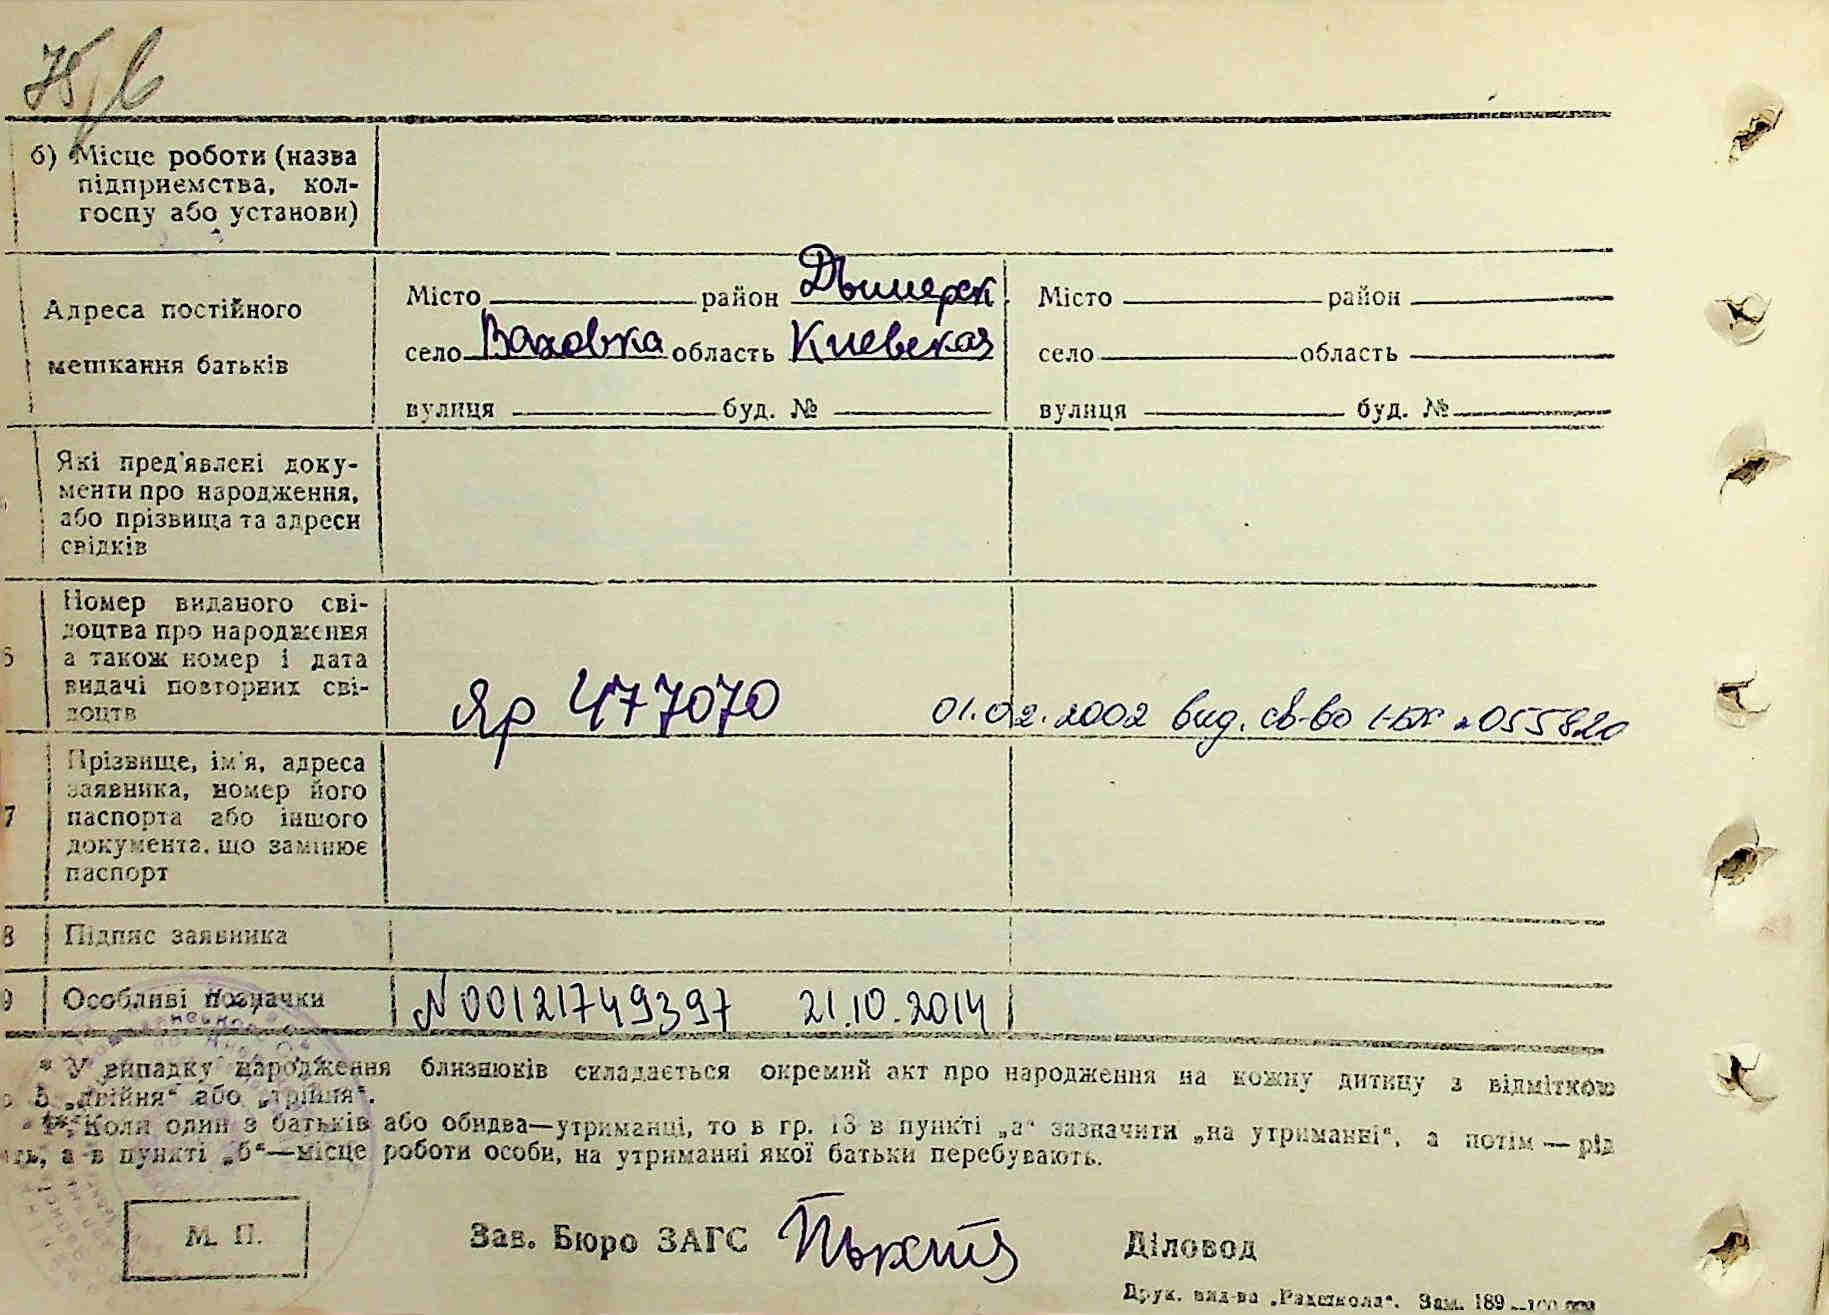 75/в
б) Місце роботи (назва
підприємства, кол-
госпу або установи)
Адреса постійного
мешкання батьків
Місто район Дымерск
село Ваховка область Киевская
вулиця буд. №
Місто район
село область
вулиця буд. №
Які пред'явлені доку-
менти про народження,
або прізвища та адреси
свідків
6 Номер виданого сві-
доцтва про народження
а також номер і дата
видачі повторних сві-
доцтв
Яр 477070
01.02.2002 вид. св-во 1-БК № 055820
7 Прізвище, ім'я, адреса
заявника, номер його
паспорта або іншого
документа, що замінює
паспорт
8 Підпис заявника
9 Особливі позначки
N 00121749397 21.10.2014
* У випадку народження близнюків складається окремий акт про народження на кожну дитину з відміткою
5 „двійня“ або „трійня“.
** Коли один з батьків або обидва—утриманці, то в гр. 13 в пункті „а“ зазначити „на утриманні“, а потім — рід
а в пункті „б“—місце роботи особи, на утриманні якої батьки перебувають.
М. П.
Зав. Бюро ЗАГС
Діловод
Друк. вид-ва „Радшкола“. Зам. 189